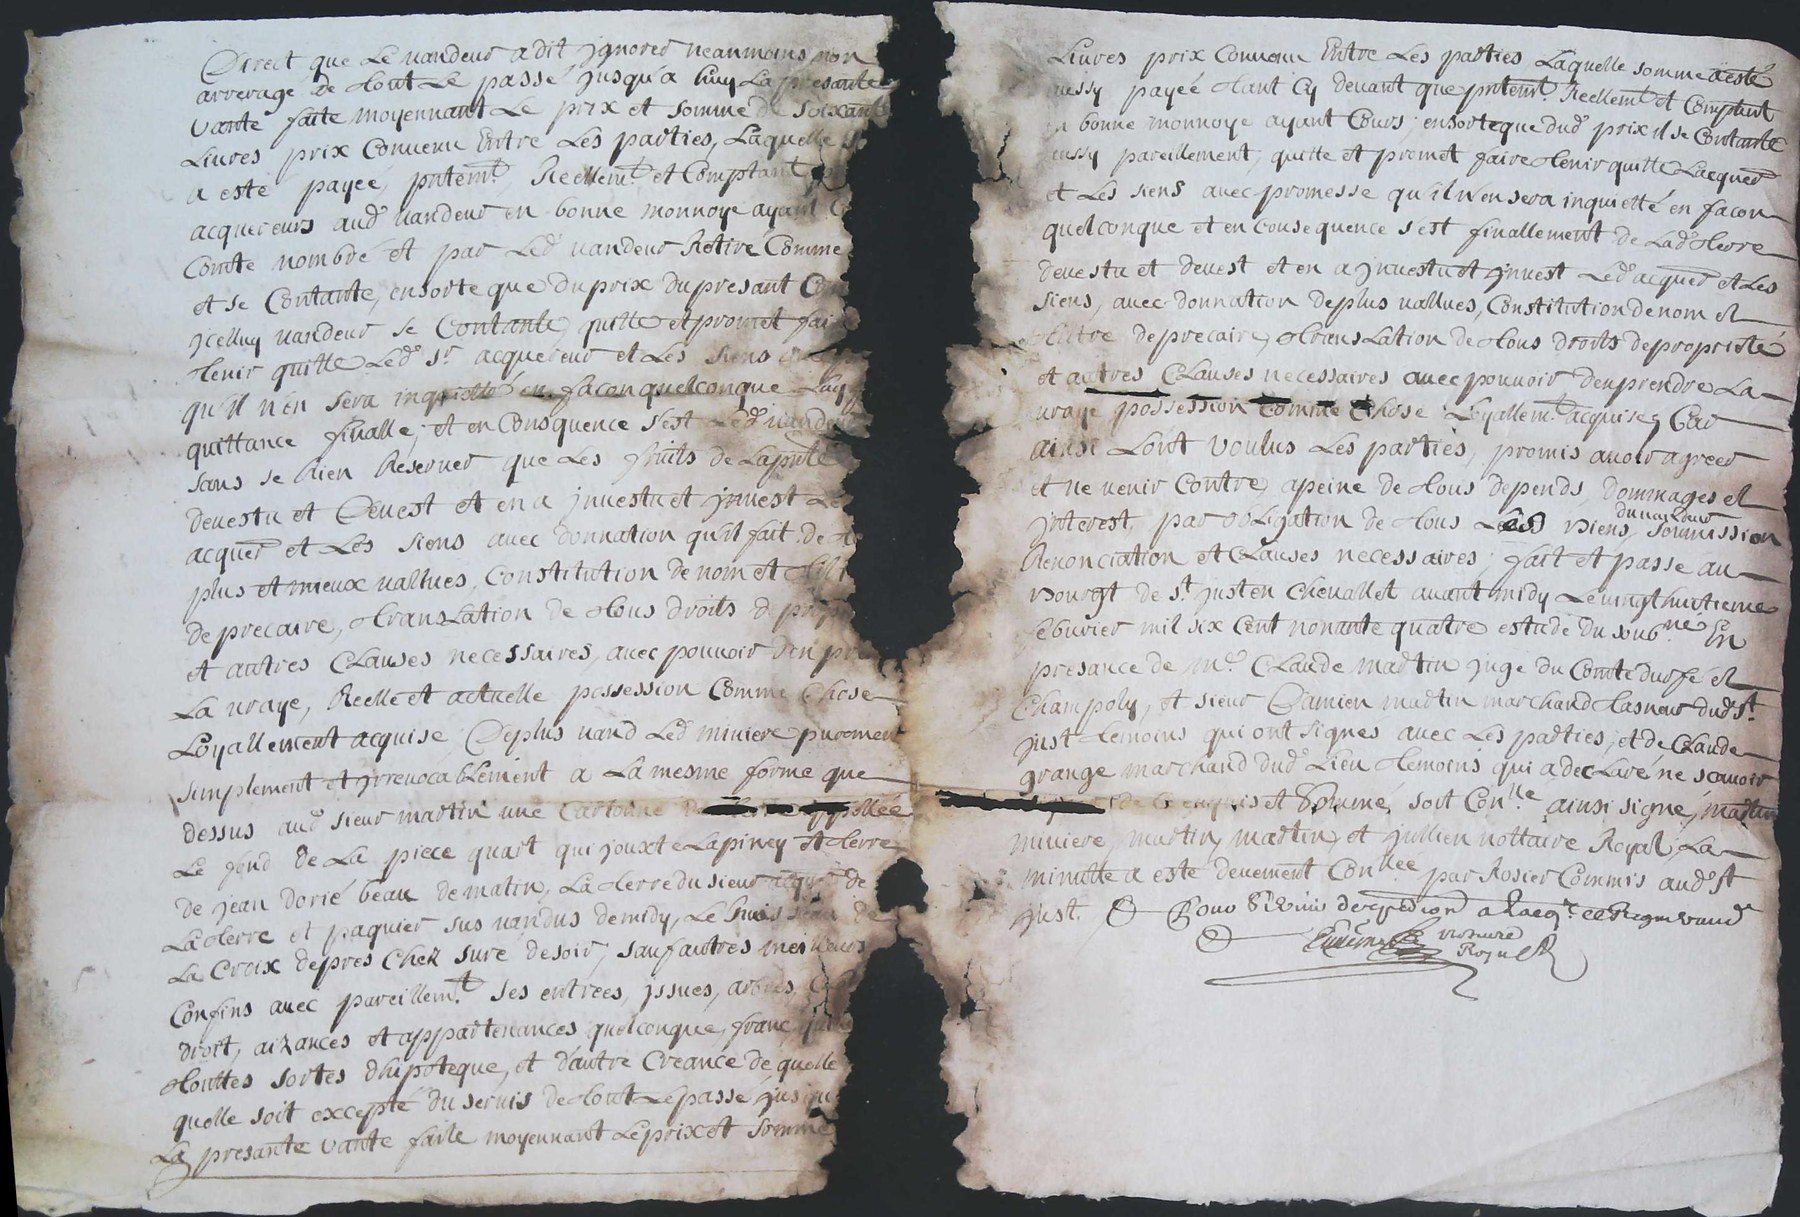 Direct que Le vandeur a dit jgnorer neanmoins non
arreragé de tout Le passé jusqu'a huy La presante
vante faite moyennant Le prix et somme de soixante
Liures prix conuenu Entre Les parties, Laquelle
a esté payée, pntem.t Reellem.t et comptant
acquereurs aud. vandeur en bonne monnoye ayant
compte nombré et par Led. vandeur Retiré comme
et se contante, en sorte que du prix du presant
jcelluy vandeur se contante, quitte et promet fai
tenir quitte Led. s.r acquereur et Les siens
qu'il n'en sera inquietté en façon quelconque
quittance finalle; et en consquence s'est Led. vandeur
sans se Rien Reseruer que Les fruits de La pnte
deuestu et Deuest et en a jnuestu et jnuest Le
acquer. et Les siens auec donnation qu'il fait de
plus et mieux vallues, constitution de nom et
de precaire, translation de tous droits d
et autres clauses necessaires, auec pouuoir d'en
La vraye, Reelle et actuelle possession comme chose
Loyallement acquise; Deplus vand Led. miniere purement
simplement et jrreuocablement a La mesme forme que
dessus aud. sieur martin une cartonné appellée
Le fond de La piece quart qui jouxte La piney et terre
de jean dorié beau de matin, La terre du sieur acquer. de
La terre et paquier sus vandus de midy, Le de
La croix depres chez sure de soir, sauf autres meilleurs
confins auec pareillem.t ses entrées, jssues, arbres,
droit, aizances et appartenances quelconque, franc,
touttes sortes dhipoteque, et d'autre creance de quelle
quelle soit excepté du seruis de tout Le passé jusqu
La presante vante faite moyennant Le prix et somme
Liures prix conuenu Entre Les parties Laquelle somme a esté
aussy payée tant cy deuant que pntem.t Reellem.t et comptant
en bonne monnoye ayant cours; en sorte que dud. prix il se contante
aussy pareillement, quitte et promet faire tenir quitte Lacquer.
et Les siens auec promesse qu'il n'en sera inquietté en façon
quelconque et en consequence s'est finallement de Lad. terre
deuestu et deuest et en a jnuestu et jnuest Led. acquer. et Les
siens, auec donnation de plus vallues, constitution de nom et
tiltre de precaire, translation de tous droits de proprieté
et autres clauses necessaires auec pouuoir d'en prendre La
vraye possession comme chose Loyallem.t acquise, car
ainsi L'ont voulus Les parties, promis auoir agreer
et ne venir contre, a peine de tous depends, dommages et
jnterest, par obligation de tous Les biens du vandeur, soumission
Renonciation et clauses necessaires; fait et passe au
bourgt de s.t just en cheuallet auant midy Le vingt huitieme
feburier mil six cent nonante quatre estude du soub.né En
presance de m.e claude martin juge du comte durfé et
champoly, et sieur Damien martin marchand tasneur dud. s.t
just temoins qui ont signes auec Les parties, et de claude
grange marchand dud. Lieu temoins qui a declaré ne scauoir
de ce enquis et sommé, soit con.lle ainsi signé, martin
miniere, martin, martin, et jullien nottaire Royal, La
minutte a este deuement con.llee par Rosier commis aud. s.t
just.
nottaire
Royal